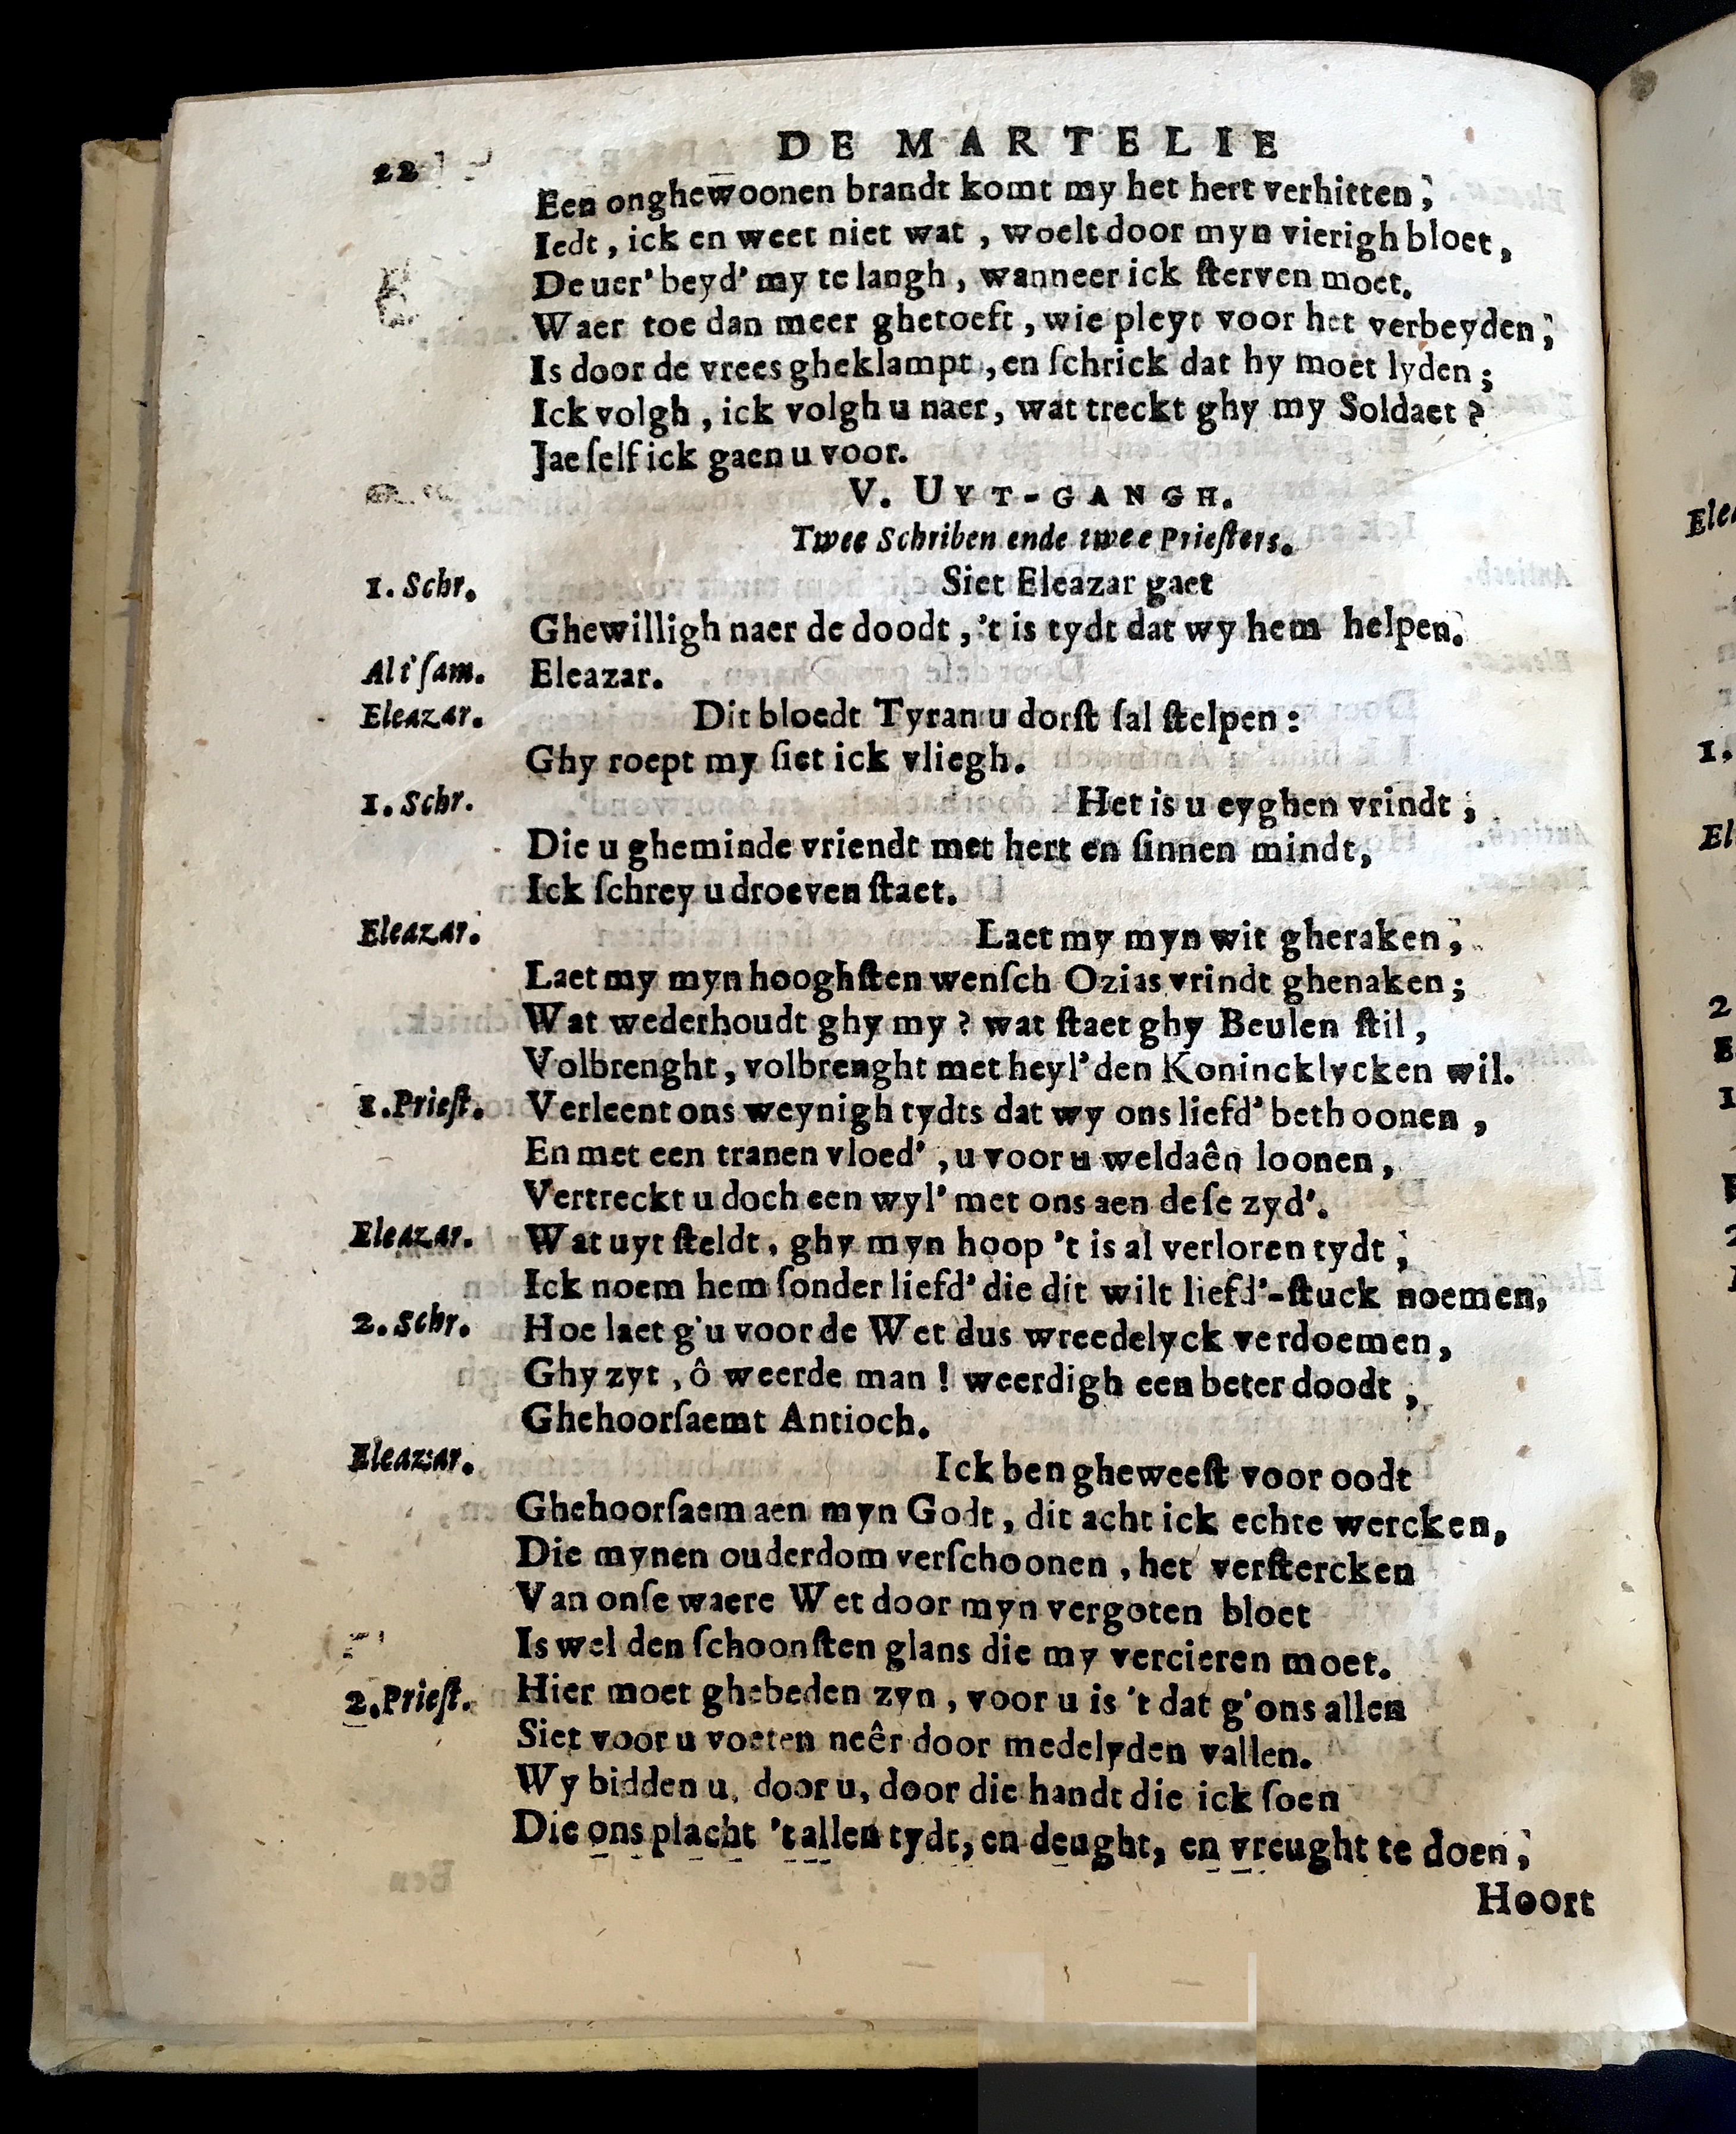 22 DE MARTELIE
Een onghewoonen brandt komt my het hert verhitten;
Iedt, ick en weet niet wat, woelt door myn vierigh bloet,
De uer' beyd' my te langh, wanneer ick ſterven moet.
Waer toe dan meer ghetoeft, wie pleyt voor het verbeyden;
Is door de vrees gheklampt, en ſchrick dat hy moet lyden;
Ick volgh, ick volgh u naer, wat treckt ghy my Soldaet?
Jae ſelf ick gaen u voor.
V. UYT-GANGH.
Twee Schriben ende twee Prieſters.
1. Schr. Siet Eleazar gaet
Ghewilligh naer de doodt, 't is tydt dat wy hem helpen.
Al t'ſam. Eleazar.
Eleazar. Dit bloedt Tyran u dorſt ſal ſtelpen:
Ghy roept my ſiet ick vliegh.
1. Schr. Het is u eyghen vrindt;
Die u gheminde vriendt met hert en ſinnen mindt,
Ick ſchrey u droeven ſtaet.
Eleazar. Laet my myn wit gheraken;
Laet my myn hooghſten wenſch Ozias vrindt ghenaken;
Wat wederhoudt ghy my? wat ſtaet ghy Beulen ſtil,
Volbrenght, volbrenght met heyl' den Konincklycken wil.
1. Prieſt. Verleent ons weynigh tydts dat wy ons liefd' bethoonen,
En met een tranen vloed', u voor u weldaên loonen,
Vertreckt u doch een wyl' met ons aen deſe zyd'.
Eleazar. Wat uyt ſteldt, ghy myn hoop 't is al verloren tydt;
Ick noem hem ſonder liefd' die dit wilt liefd'-ſtuck noemen,
2. Schr. Hoe laet g'u voor de Wet dus wreedelyck verdoemen,
Ghy zyt, ô weerde man! weerdigh een beter doodt,
Ghehoorſaemt Antioch.
Eleazar. Ick ben gheweeſt voor oodt
Ghehoorſaem aen myn Godt, dit acht ick echte wercken,
Die mynen ouderdom verſchoonen, het verſtercken
Van onſe waere Wet door myn vergoten bloet
Is wel den ſchoonſten glans die my vercieren moet.
2. Prieſt. Hier moet ghebeden zyn, voor u is 't dat g'ons allen
Siet voor u voeten neêr door medelyden vallen.
Wy bidden u, door u, door die handt die ick ſoen
Die ons placht 't allen tydt, en deught, en vreught te doen;
Hoort